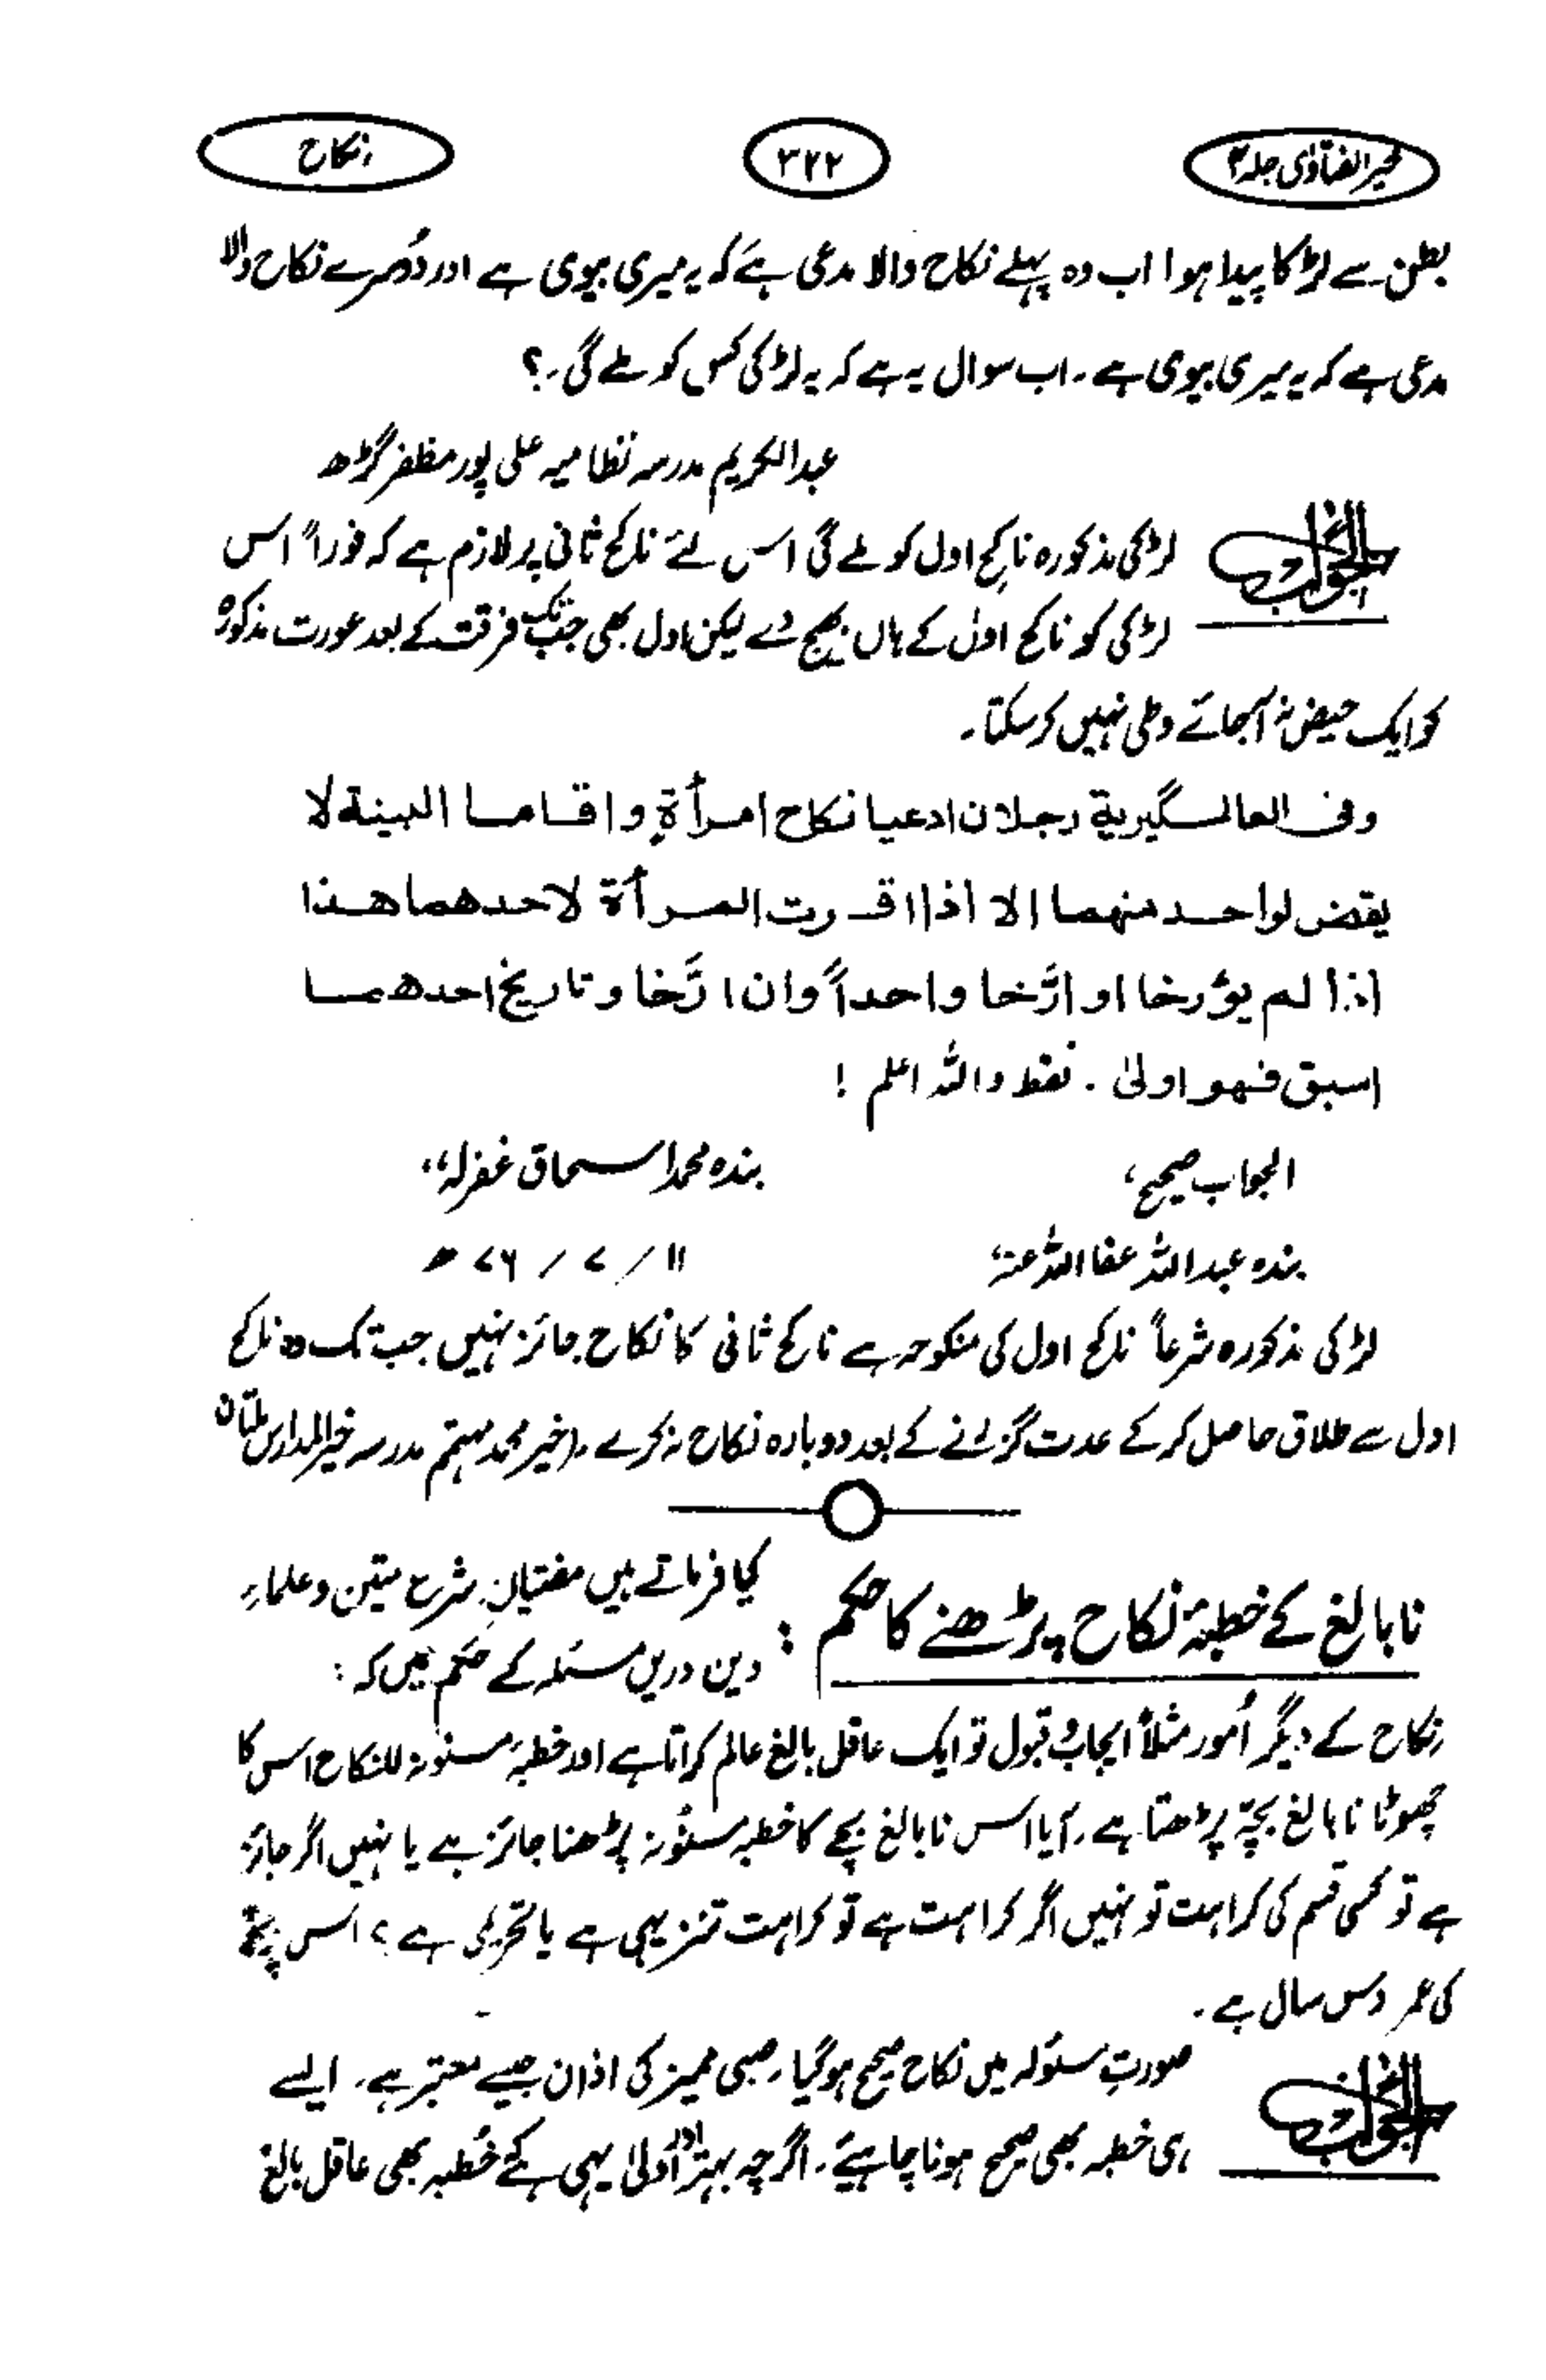 خیر الفتاوٰی جلد ۴
۳۲۲
نکاح
بطن سے لڑکا پیدا ہوا اب وہ پہلے نکاح والا مدعی ہے کہ یہ میری بیوی ہے اور دُوسرے نکاح والا
مدعی ہے کہ یہ میری بیوی ہے ۔ اب سوال یہ ہے کہ یہ لڑکی کس کو ملے گی ۔؟
عبدالکریم مدرسہ نظامیہ علی پور مظفر گڑھ
الجواب
لڑکی مذکورہ ناکحِ اول کو ملے گی اس لئے ناکح ثانی پر لازم ہے کہ فوراً اس
لڑکی کو ناکح اول کے ہاں بھیج دے لیکن اول بھی جب تک فرقت کے بعد عورت مذکورہ
کو ایک حیض نہ آجائے وطی نہیں کرسکتا ۔
وفی العالمگیریة رجلان ادعیا نکاح امرأةٍ واقاما البینة لا
یقض لواحد منهما الا اذا اقرت المرأة لاحدهما هذا
اذا لم یؤرخا او ارّخا واحداً وان ارّخا وتاریخ احدهما
اسبق فهو اولیٰ ۔ فقط واللہ اعلم !
الجواب صحیح،
بندہ محمد اسحاق غفرلہ،،
بندہ عبداللہ عفا اللہ عنہ،
۱۱ / ۷ / ۷۶ ھ
لڑکی مذکورہ شرعاً ناکح اول کی منکوحہ ہے ناکح ثانی کا نکاح جائز نہیں جب تک وہ ناکح
اول سے طلاق حاصل کر کے عدت گزرنے کے بعد دوبارہ نکاح نہ کرے ۔ (خیر محمد مہتمم مدرسہ خیر المدارس ملتان
نابالغ کے خطبۂ نکاح پڑھنے کا حکم :
کیا فرماتے ہیں مفتیانِ شرع متین و علماءِ
دین دریں مسئلہ کے حکم میں کہ :
نکاح کے دیگر اُمور مثلاً ایجاب و قبول تو ایک عاقل بالغ عالم کراتا ہے اور خطبۂ مسنونہ للنکاح اس کا
چھوٹا نابالغ بچّہ پڑھتا ہے ۔ آیا اس نابالغ بچے کا خطبہ مسنُونہ پڑھنا جائز ہے یا نہیں اگر جائز
ہے تو کسی قسم کی کراہت تو نہیں اگر کراہت ہے تو کراہت تنزیہی ہے یا تحریمی ہے ؟ اس بچّے
کی عمر دس سال ہے ۔
الجواب
صورتِ مسئولہ میں نکاح صحیح ہوگیا ۔ صبی ممیز کی اذان جیسے معتبر ہے ۔ ایسے
ہی خطبہ بھی صحیح ہونا چاہیئے ۔ اگرچہ بہتر اور اَولیٰ یہی ہے کہ خُطبہ بھی عاقل بالغ